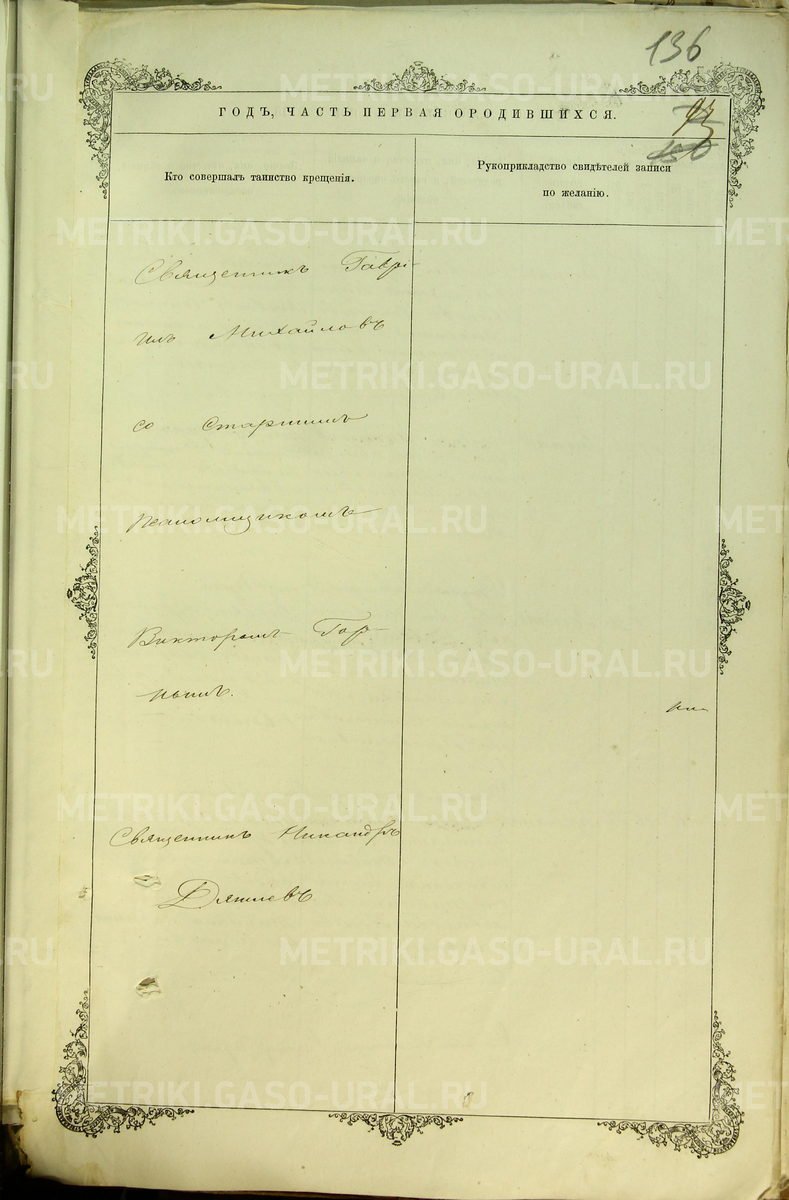 136
ГОДЪ, ЧАСТЬ ПЕРВАЯ ОРОДИВШИХСЯ.
Кто совершалъ таинство крещенія.
Рукоприкладство свидѣтелей записи
по желанію.
Священникъ Гаврі-
илъ Михайловъ
со старшимъ
псаломщикомъ
Викторомъ Гор-
нымъ.
Священникъ Никандръ
METRIKI.GASO-URAL.RU